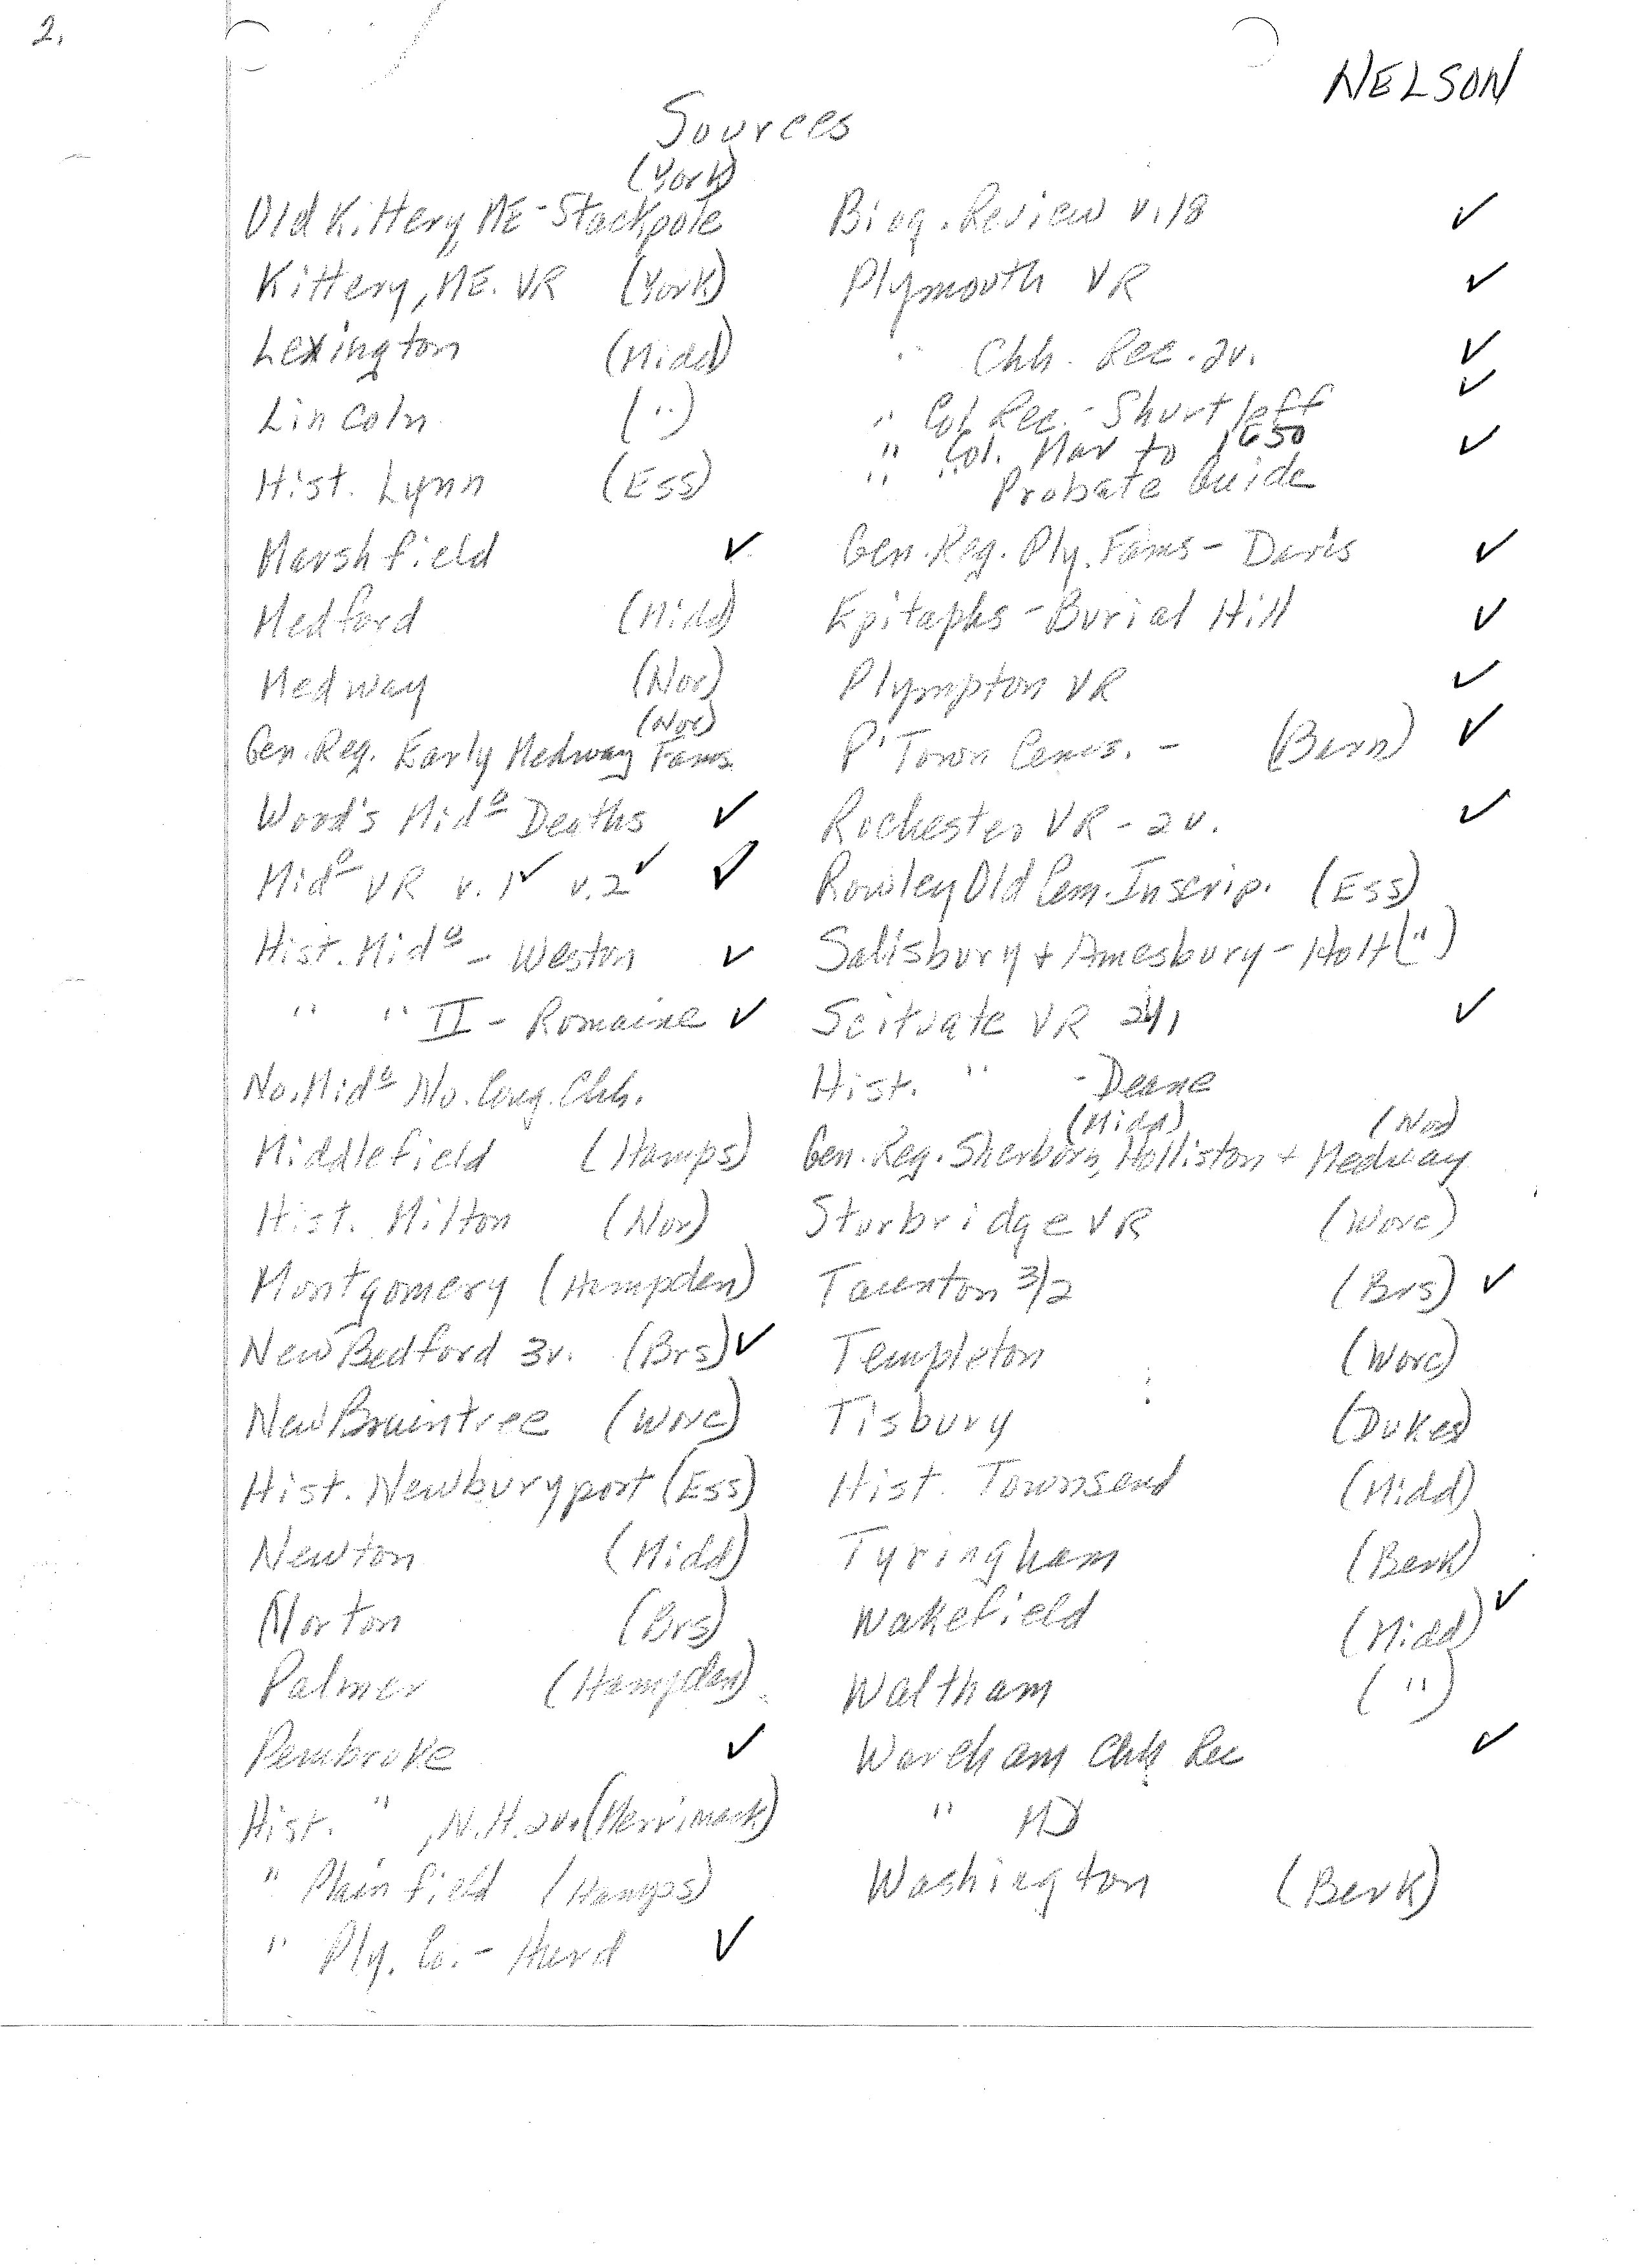 2.
NELSON
Sources
(York)
Old Kittery, ME - Stackpole
Kittery, ME. VR (York)
Lexington (Midd)
Lincoln (")
Hist. Lynn (Ess)
Marshfield ✓
Medford (Midd)
Medway (Nor)
(Nor)
Gen. Reg. Early Medway Fams.
Wood's Mid⁰ Deaths ✓
Mid⁰ VR v. 1 ✓ v. 2 ✓ ✓
Hist. Mid⁰ - Weston ✓
" " II - Romaine ✓
No. Mid⁰ No. Cong. Chh.
Middlefield (Hamps)
Hist. Milton (Nor)
Montgomery (Hampden)
New Bedford 3v. (Brs) ✓
New Braintree (Worc)
Hist. Newburyport (Ess)
Newton (Midd)
Norton (Brs)
Palmer (Hampden)
Pembroke ✓
Hist. ", N.H. 2v. (Merrimack)
" Plainfield (Hamps)
" Ply. Co. - Hurd ✓
Biog. Review v. 18 ✓
Plymouth VR ✓
" Chh. Rec. 2v. ✓
" Col. Rec. - Shurtleff ✓
" Col. Mar to 1650 ✓
" " Probate Guide
Gen. Reg. Ply. Fams - Davis ✓
Epitaphs - Burial Hill ✓
Plympton VR ✓
P'Town Cems. - (Barn) ✓
Rochester VR - 2v. ✓
Rowley Old Cem. Inscrip. (Ess)
Salisbury + Amesbury - Hoyt (")
Scituate VR ✓
Hist. " - Deane
(Midd) (Nor)
Gen. Reg. Sherborn, Holliston + Medway
Sturbridge VR (Worc)
Taunton 3/2 (Brs) ✓
Templeton (Worc)
Tisbury (Dukes)
Hist. Townsend (Midd)
Tyringham (Berk)
Wakefield (Midd) ✓
Waltham (")
Wareham Chh Rec ✓
" MD
Washington (Berk)